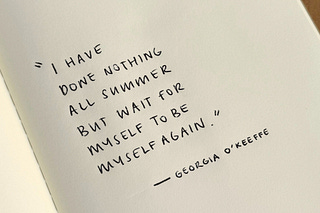 "I HAVE
DONE NOTHING
ALL SUMMER
BUT WAIT FOR
MYSELF TO BE
MYSELF AGAIN."
— GEORGIA O'KEEFFE